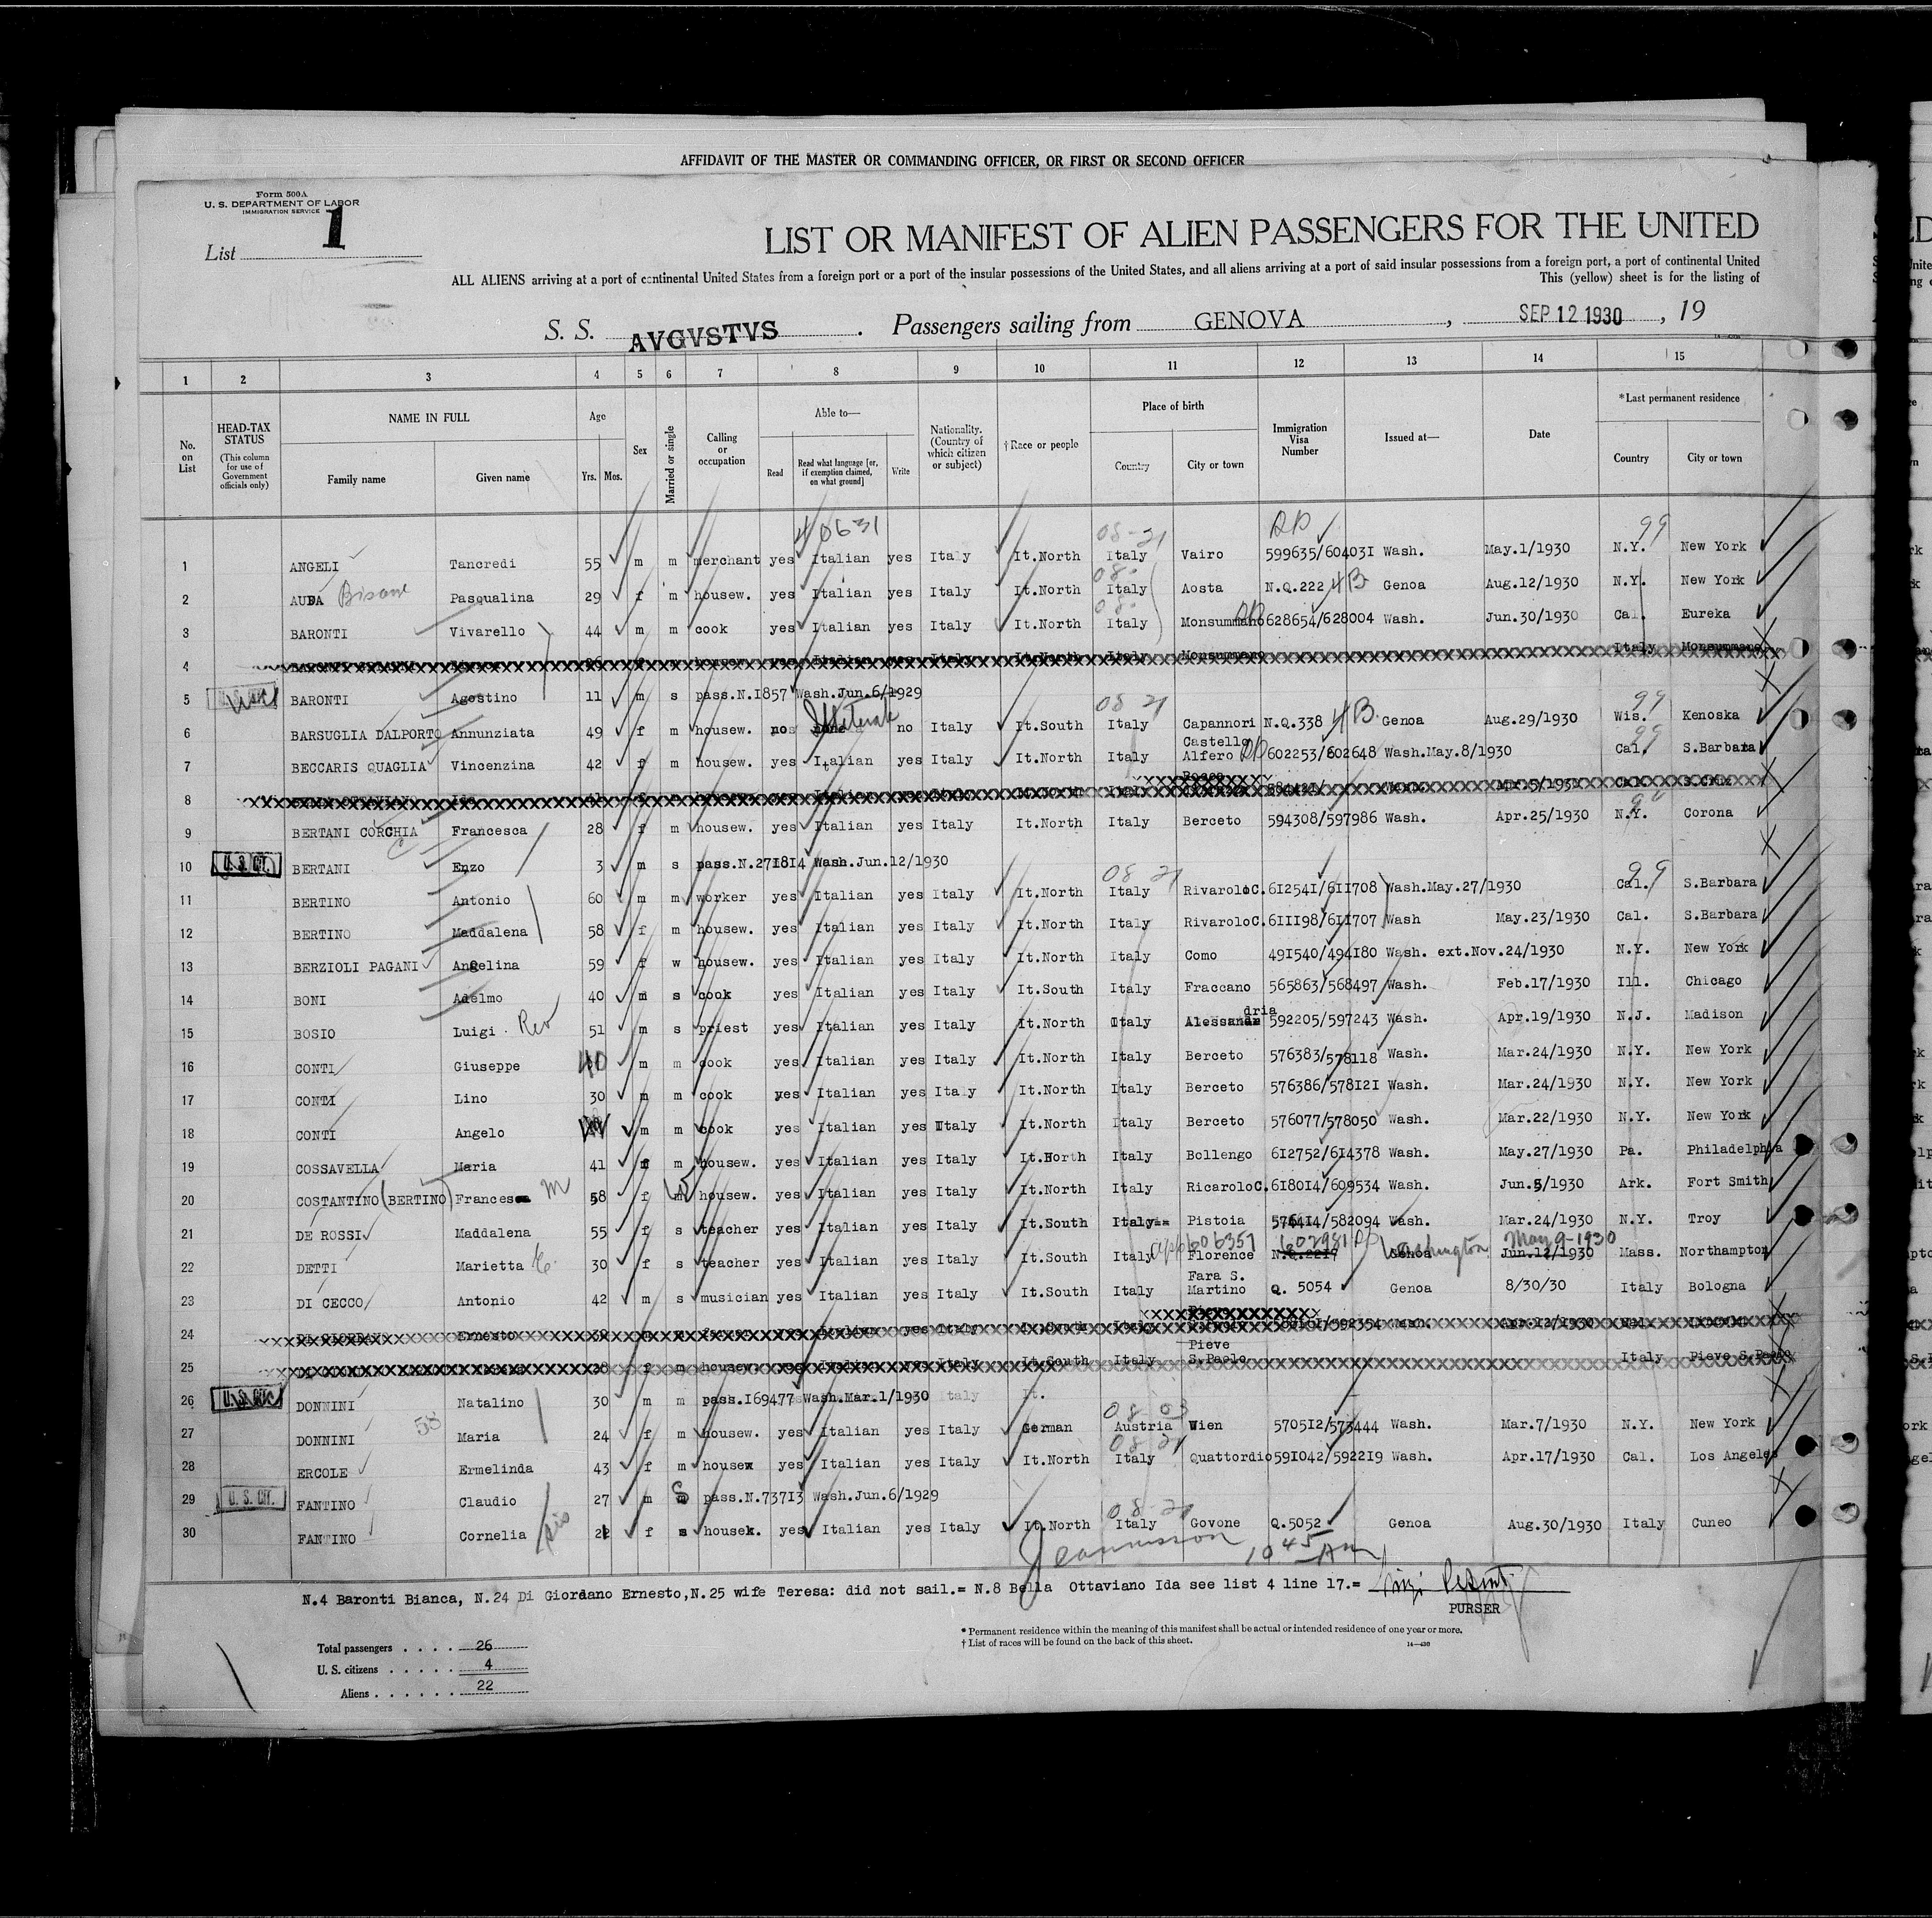 AFFIDAVIT OF THE MASTER OR COMMANDING OFFICER, OR FIRST OR SECOND OFFICER
Form 500A
U. S. DEPARTMENT OF LABOR
IMMIGRATION SERVICE
List 1
LIST OR MANIFEST OF ALIEN PASSENGERS FOR THE UNITED
ALL ALIENS arriving at a port of continental United States from a foreign port or a port of the insular possessions of the United States, and all aliens arriving at a port of said insular possessions from a foreign port, a port of continental United
This (yellow) sheet is for the listing of
S. S. AVGVSTVS . Passengers sailing from GENOVA , SEP 12 1930 , 19
1 2 3 4 5 6 7 8 9 10 11 12 13 14 15
No. on List
HEAD-TAX STATUS (This column for use of Government officials only)
NAME IN FULL Family name Given name
Age Yrs. Mos.
Sex
Married or single
Calling or occupation
Able to— Read Read what language [or, if exemption claimed, on what ground] Write
Nationality. (Country of which citizen or subject)
† Race or people
Place of birth Country City or town
Immigration Visa Number
Issued at—
Date
*Last permanent residence Country City or town
40631 08-21 99
1 ANGELI Tancredi 55 m m merchant yes Italian yes Italy It.North Italy Vairo 599635/604031 Wash. May.1/1930 N.Y. New York
2 AUDA Pasqualina 29 f m housew. yes Italian yes Italy It.North Italy Aosta N.Q.222 4B Genoa Aug.12/1930 N.Y. New York
3 BARONTI Vivarello 44 m m cook yes Italian yes Italy It.North Italy Monsummano 628654/628004 Wash. Jun.30/1930 Cal. Eureka
4 It.North Italy Monsummano Italy Monsummano
5 BARONTI Agostino 11 m s pass.N.1857 Wash.Jun.6/1929
08 21 99
6 BARSUGLIA DALPORTO Annunziata 49 f m housew. no Illiterate no Italy It.South Italy Capannori N.Q.338 4B Genoa Aug.29/1930 Wis. Kenoska
7 BECCARIS QUAGLIA Vincenzina 42 f m housew. yes Italian yes Italy It.North Italy Castello Alfero 602253/602648 Wash.May.8/1930 Cal. S.Barbara
8
9 BERTANI CORCHIA Francesca 28 f m housew. yes Italian yes Italy It.North Italy Berceto 594308/597986 Wash. Apr.25/1930 N.Y. Corona
10 U.S. CIT. BERTANI Enzo 3 m s pass.N.271814 Wash.Jun.12/1930
08 21 99
11 BERTINO Antonio 60 m m worker yes Italian yes Italy It.North Italy RivaroloC. 612541/611708 Wash.May.27/1930 Cal. S.Barbara
12 BERTINO Maddalena 58 f m housew. yes Italian yes Italy It.North Italy RivaroloC. 611198/611707 Wash May.23/1930 Cal. S.Barbara
13 BERZIOLI PAGANI Angelina 59 f w housew. yes Italian yes Italy It.North Italy Como 491540/494180 Wash. ext.Nov.24/1930 N.Y. New York
14 BONI Adelmo 40 m s cook yes Italian yes Italy It.South Italy Fraccano 565863/568497 Wash. Feb.17/1930 Ill. Chicago
15 BOSIO Luigi Rev 51 m s priest yes Italian yes Italy It.North Italy Alessandria 592205/597243 Wash. Apr.19/1930 N.J. Madison
16 CONTI Giuseppe 40 m m cook yes Italian yes Italy It.North Italy Berceto 576383/578118 Wash. Mar.24/1930 N.Y. New York
17 CONTI Lino 30 m m cook yes Italian yes Italy It.North Italy Berceto 576386/578121 Wash. Mar.24/1930 N.Y. New York
18 CONTI Angelo m m cook yes Italian yes Italy It.North Italy Berceto 576077/578050 Wash. Mar.22/1930 N.Y. New York
19 COSSAVELLA Maria 41 f m housew. yes Italian yes Italy It.North Italy Bollengo 612752/614378 Wash. May.27/1930 Pa. Philadelphia
20 COSTANTINO (BERTINO) Francesca M 58 f w housew. yes Italian yes Italy It.North Italy RicaroloC. 618014/609534 Wash. Jun.5/1930 Ark. Fort Smith
21 DE ROSSI Maddalena 55 f s teacher yes Italian yes Italy It.South Italy Pistoia 576414/582094 Wash. Mar.24/1930 N.Y. Troy
606357 602981 Washington May 9-1930
22 DETTI Marietta 30 f s teacher yes Italian yes Italy It.South Italy Florence N.Q.2219 Genoa Jun.12/1930 Mass. Northampton
23 DI CECCO Antonio 42 m s musician yes Italian yes Italy It.South Italy Fara S. Martino Q. 5054 Genoa 8/30/30 Italy Bologna
24 DI GIORDANO Ernesto
25 28 f m housew. yes Italian yes Italy It.South Italy Pieve S.Paolo Italy Pieve S.Paolo
26 U.S. CIT. DONNINI Natalino 30 m m pass.169477 Wash.Mar.1/1930 Italy It.
58 08 03
27 DONNINI Maria 24 f m housew. yes Italian yes Italy German Austria Wien 570512/573444 Wash. Mar.7/1930 N.Y. New York
08 21
28 ERCOLE Ermelinda 43 f m housew yes Italian yes Italy It.North Italy Quattordio 591042/592219 Wash. Apr.17/1930 Cal. Los Angeles
29 U.S. CIT. FANTINO Claudio 27 m S pass.N.73713 Wash.Jun.6/1929
08 21
30 FANTINO Cornelia sis 21 f s housek. yes Italian yes Italy It.North Italy Govone Q.5052 Genoa Aug.30/1930 Italy Cuneo
10 45 AM
N.4 Baronti Bianca, N.24 Di Giordano Ernesto,N.25 wife Teresa: did not sail.= N.8 Bella Ottaviano Ida see list 4 line 17.=
PURSER
* Permanent residence within the meaning of this manifest shall be actual or intended residence of one year or more.
† List of races will be found on the back of this sheet. 14—430
Total passengers . . . . 26
U. S. citizens . . . . . 4
Aliens . . . . . . 22